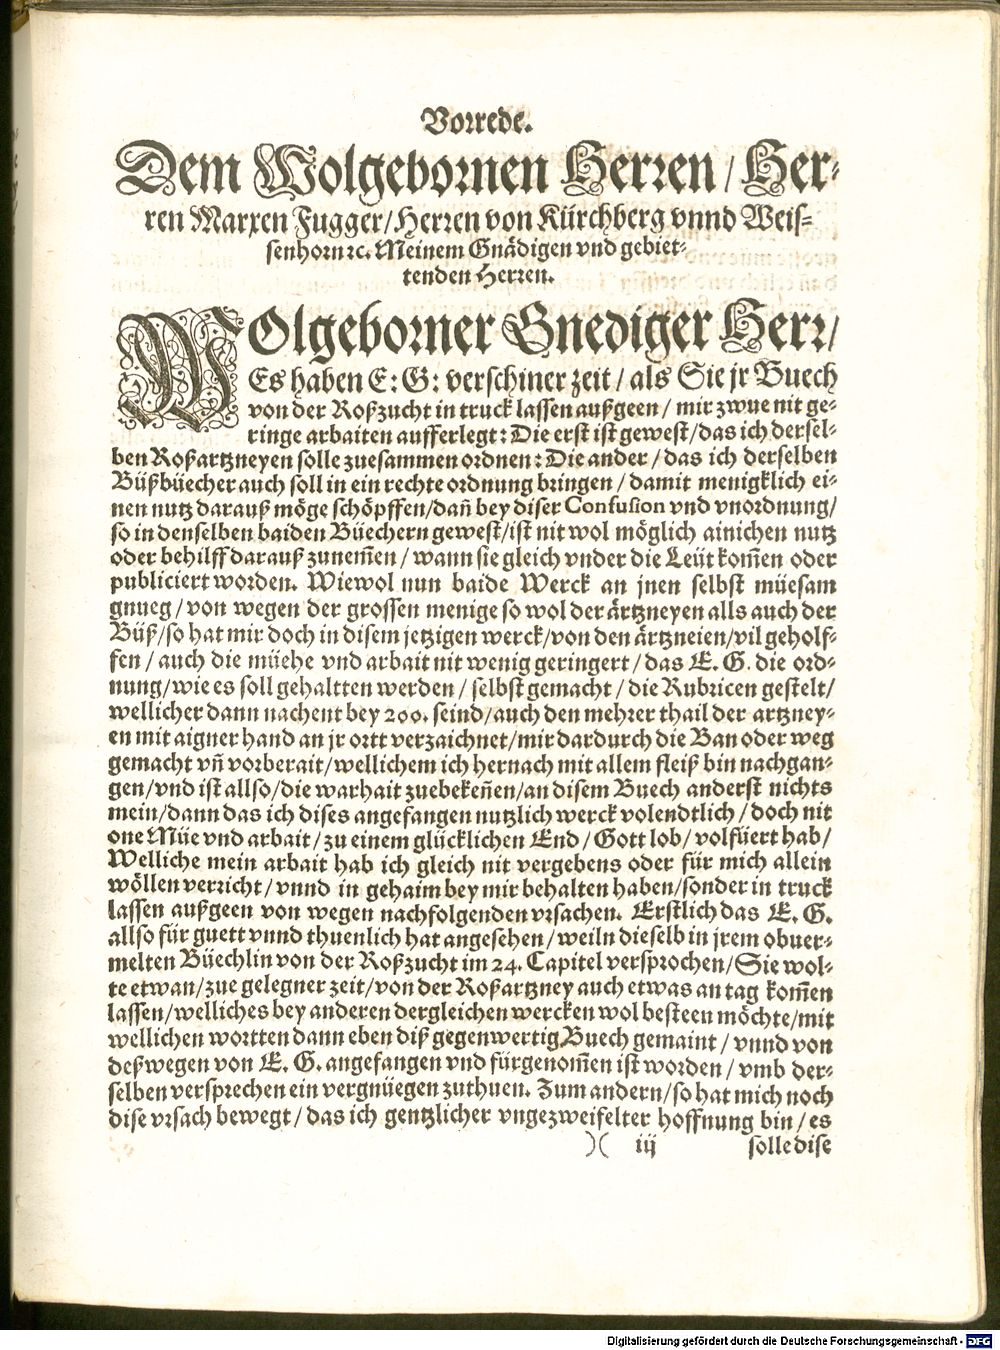 Vorrede.
Dem Wolgebornen Herren / Her-
ren Marxen Fugger/Herren von Kürchberg vnnd Weis-
senhorn ꝛc. Meinem Gnädigen vnd gebiet-
tenden Herren.
WOlgeborner Gnediger Herr/
Es haben E: G: verschiner zeit / als Sie jr Buech
von der Roßzucht in truck lassen außgeen / mir zwue nit ge-
ringe arbaiten aufferlegt: Die erst ist gewest/das ich dersel-
ben Roßartzneyen solle zuesammen ordnen: Die ander / das ich derselben
Büßbüecher auch soll in ein rechte ordnung bringen / damit menigklich ei-
nen nutz darauß möge schöpffen/dañ bey diser Confusion vnd vnordnung/
so in denselben baiden Büechern gewest/ist nit wol möglich ainichen nutz
oder behilff darauß zunem̃en / wann sie gleich vnder die Leüt kom̃en oder
publiciert worden. Wiewol nun baide Werck an jnen selbst müesam
gnueg / von wegen der grossen menige so wol der ärtzneyen alls auch der
Büß/so hat mir doch in disem jetzigen werck/von den ärtzneien/vil geholf-
fen / auch die müehe vnd arbait nit wenig geringert / das E. G. die ord-
nung/wie es soll gehaltten werden / selbst gemacht / die Rubricen gestelt/
wellicher dann nachent bey 200. seind/auch den mehrer thail der artzney-
en mit aigner hand an jr ortt verzaichnet/mir dardurch die Ban oder weg
gemacht vñ vorberait/wellichem ich hernach mit allem fleiß bin nachgan-
gen/vnd ist allso/die warhait zuebekeñen/an disem Buech anderst nichts
mein/dann das ich dises angefangen nutzlich werck volendtlich / doch nit
one Müe vnd arbait / zu einem glücklichen End / Gott lob/ volfüert hab/
Welliche mein arbait hab ich gleich nit vergebens oder für mich allein
wöllen verricht/ vnnd in gehaim bey mir behalten haben/sonder in truck
lassen außgeen von wegen nachfolgenden vrsachen. Erstlich das E. G.
allso für guett vnnd thuenlich hat angesehen / weiln dieselb in jrem obuer-
melten Büechlin von der Roßzucht im 24. Capitel versprochen/Sie wol-
te etwan/zue gelegner zeit/von der Roßartzney auch etwas an tag kom̃en
lassen/welliches bey anderen dergleichen wercken wol besteen möchte/mit
wellichen wortten dann eben diß gegenwertig Buech gemaint / vnnd von
deßwegen von E. G. angefangen vnd fürgenom̃en ist worden / vmb der-
selben versprechen ein vergnüegen zuthuen. Zum andern/so hat mich noch
dise vrsach bewegt / das ich gentzlicher vngezweifelter hoffnung bin / es
)( iij solle dise
Digitalisierung gefördert durch die Deutsche Forschungsgemeinschaft - DFG